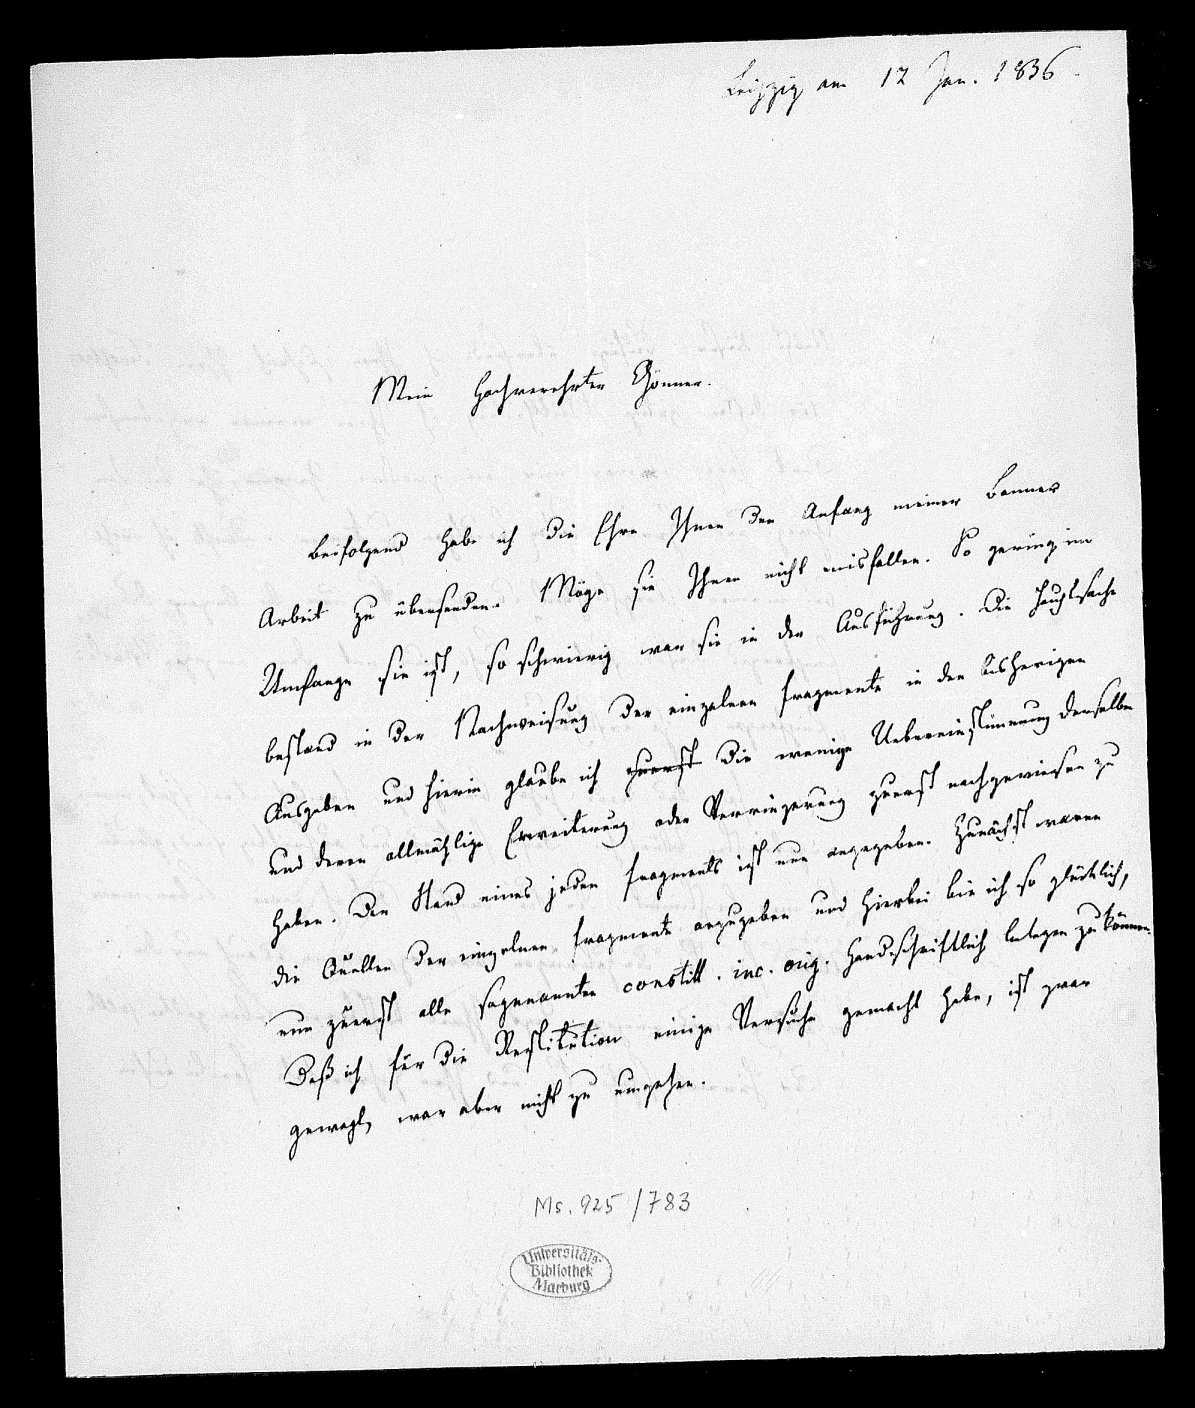 Leipzig am 12 Jan. 1836.
Mein Hochverehrter Gönner.
Beifolgend habe ich die Ehre Ihnen den Anfang meiner Bonner
Arbeit zu übersenden. Möge sie Ihnen nicht misfallen. So gering im
Umfange sie ist, so schwierig war sie in der Ausführung. Die Hauptsache
bestand in der Nachweisung der einzelnen Fragmente in den bisherigen
Ausgaben und hierin glaube ich zuerst die wenige Uebereinstimmung derselben
und deren allmählige Erweiterung oder Verringerung zuerst nachgewiesen zu
haben. Der Stand eines jeden Fragments ist nun angegeben. Zunächst waren
die Quellen der einzelnen Fragmente anzugeben und hierbei bin ich so glücklich,
nun zuerst alle sogenannten constitt. inc. orig. handschriftlich belegen zu können.
Daß ich für die Restitution einige Versuche gemacht habe, ist zwar
gewagt, war aber nicht zu umgehen.
Ms. 925/783
Universitäts-
Bibliothek
Marburg